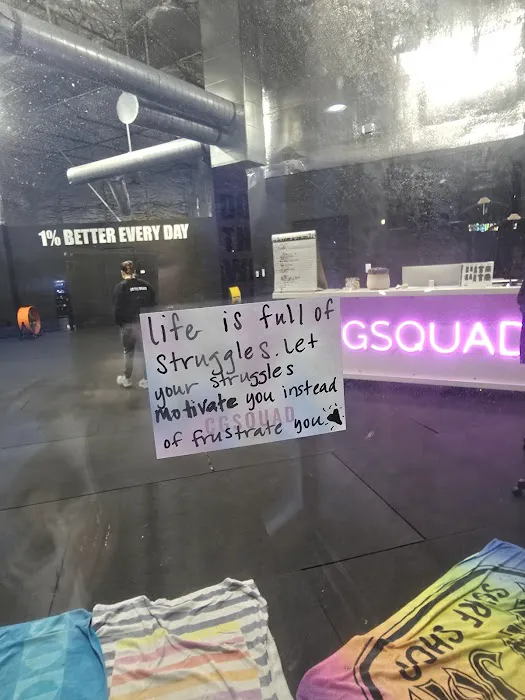 1% BETTER EVERY DAY
GSQUAD
life is full of
struggles. Let
your struggles
motivate you instead
of frustrate you.
CGSQUAD
SURF SHOP